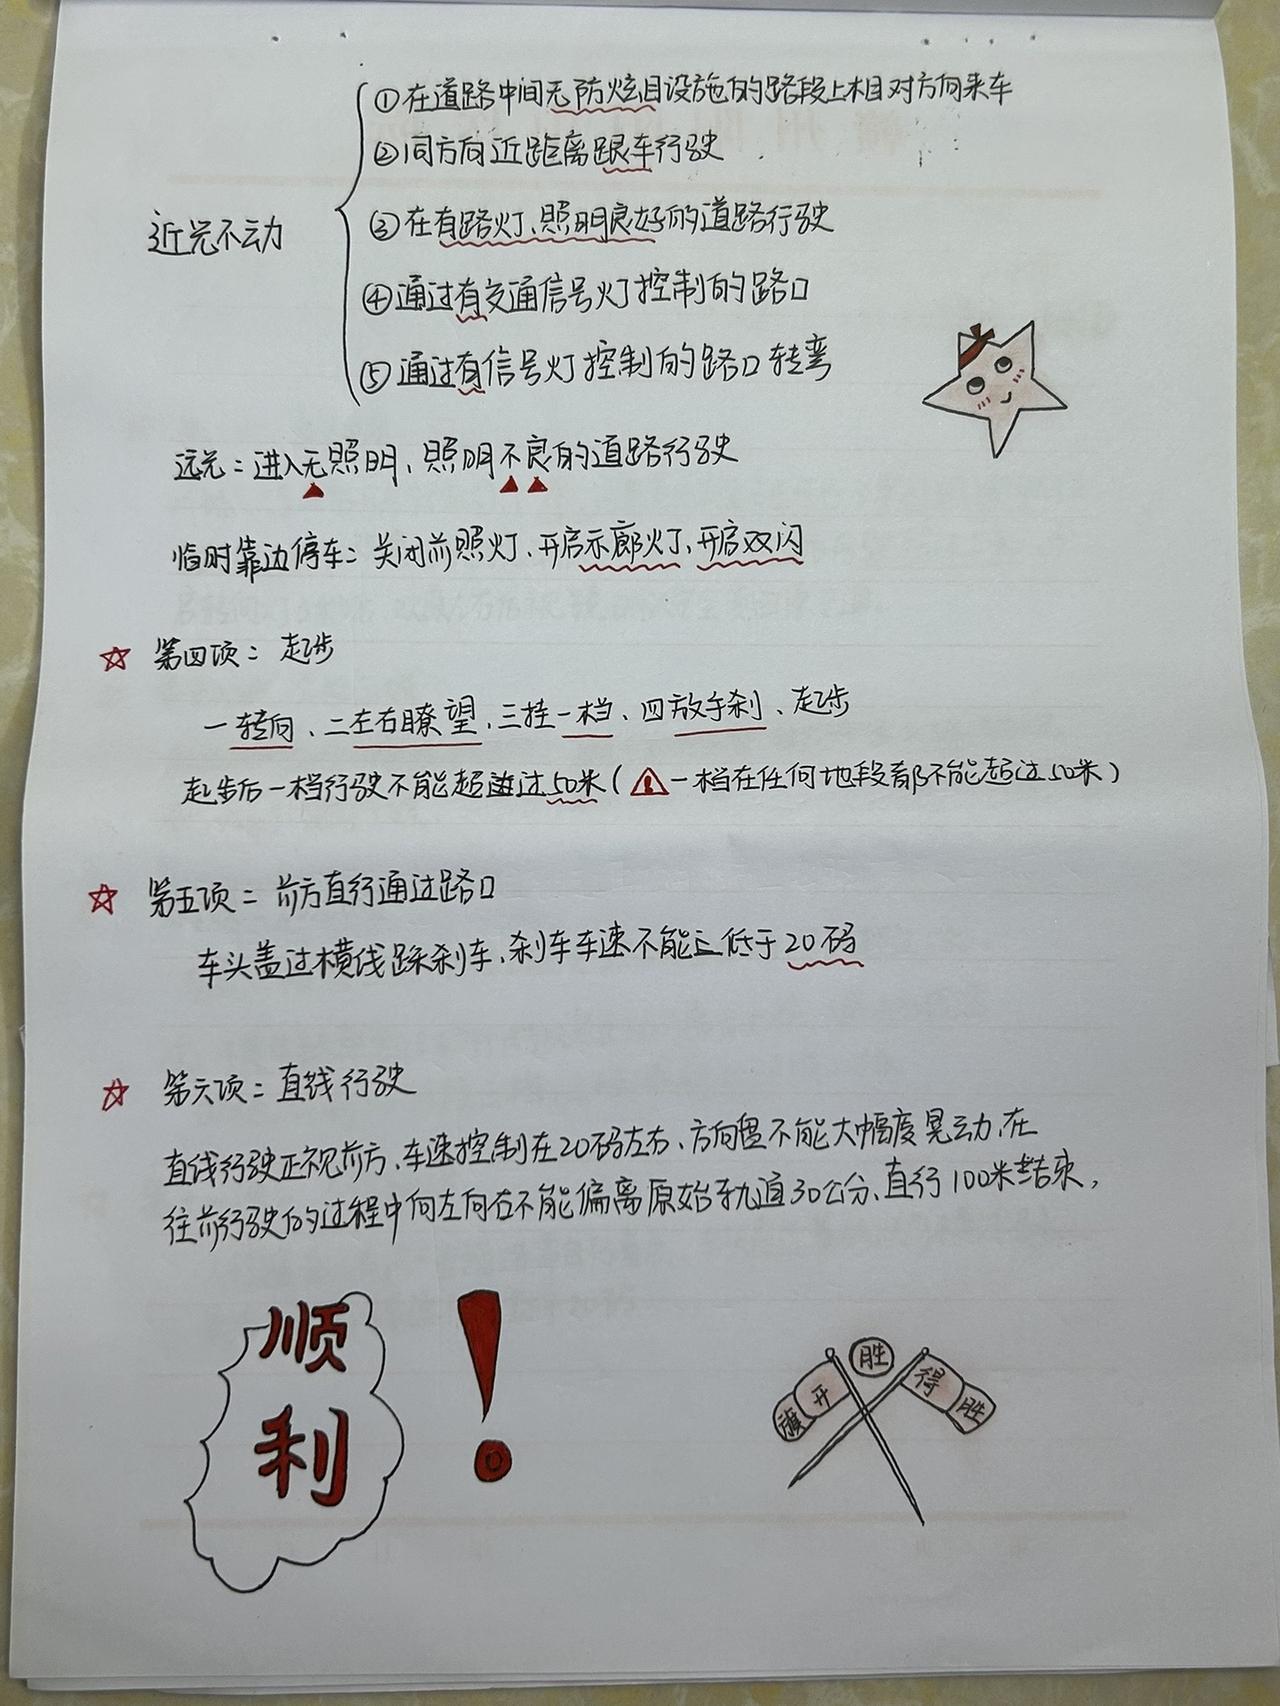 ①在道路中间无防炫目设施的路段上相对方向来车
②同方向近距离跟车行驶
近光不动
③在有路灯、照明良好的道路行驶
④通过有交通信号灯控制的路口
⑤通过有信号灯控制的路口转弯
远光：进入无照明、照明不良的道路行驶
临时靠边停车：关闭前照灯、开启示廊灯、开启双闪
☆ 第四项：起步
一转向、二左右瞭望、三挂一档、四放手刹、起步
起步后一档行驶不能超过50米(一档在任何地段都不能超过50米)
☆ 第五项：前方直行通过路口
车头盖过横线踩刹车、刹车车速不能低于20码
☆ 第六项：直线行驶
直线行驶正视前方、车速控制在20码左右、方向盘不能大幅度晃动、在
往前行驶的过程中向左向右不能偏离原始轨道30公分、直行100米结束,
顺
利
！
胜
旗开
得胜